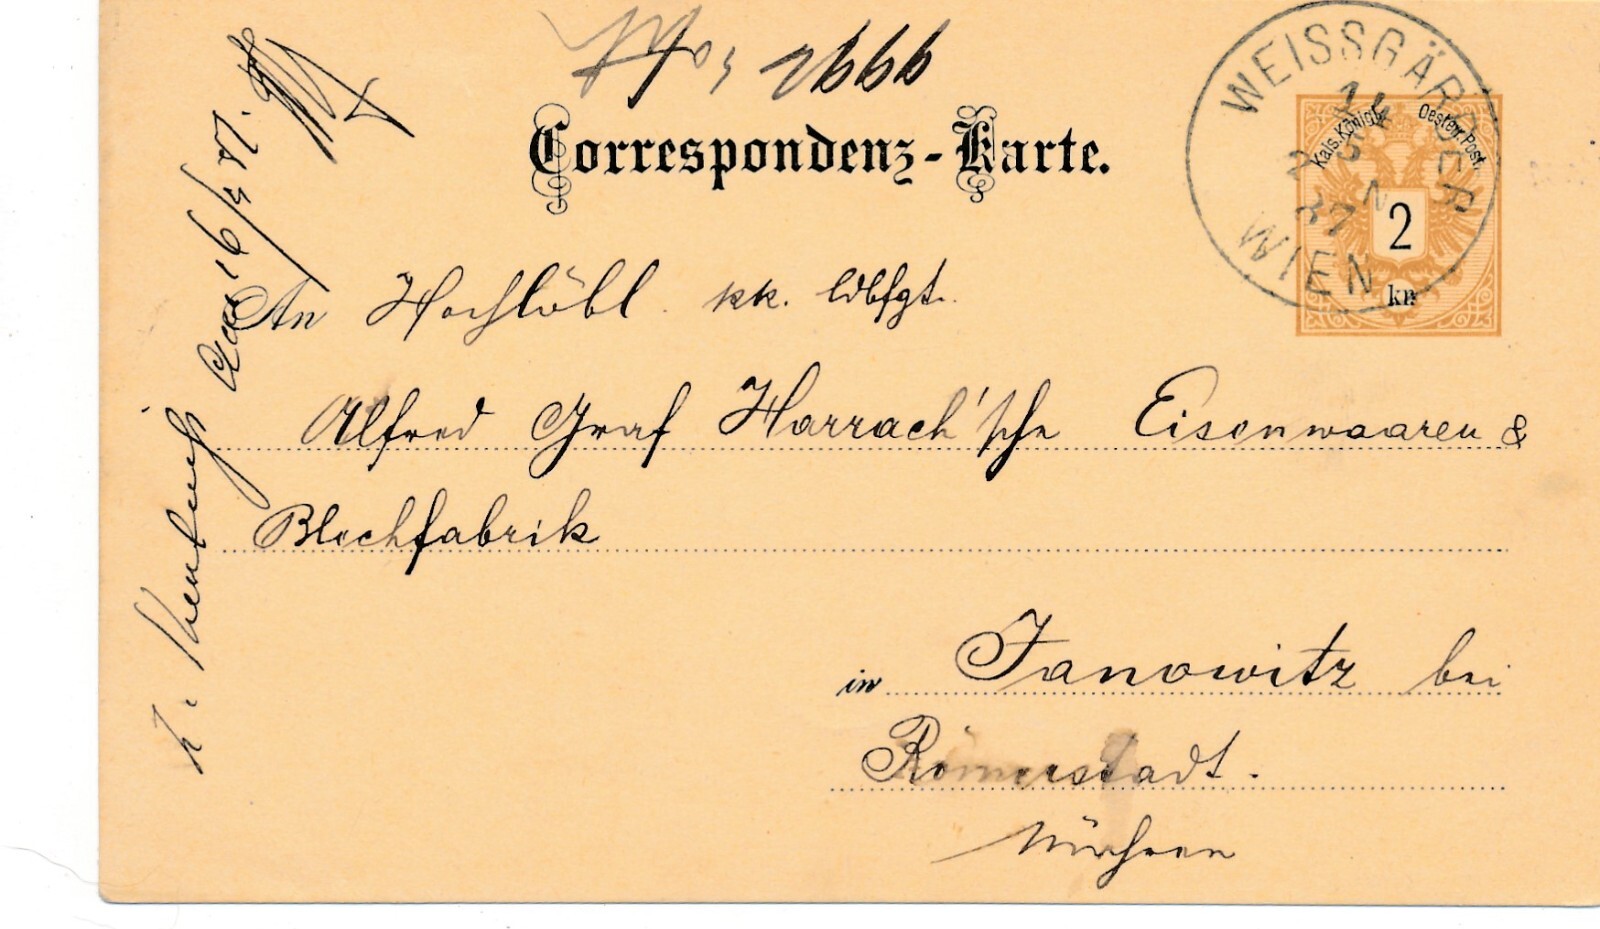 No 2666
Correspondenz-Karte.
WEISSGÄRBER
WIEN
14
5
87
Kais. Königl. Oesterr. Post.
2
kr
An Hochlöbl. kk. ldbfgt.
Alfred Graf Harrach'sche Eisenwaaren &
Blechfabrik
in Janowitz bei
Römerstadt.
Mähren